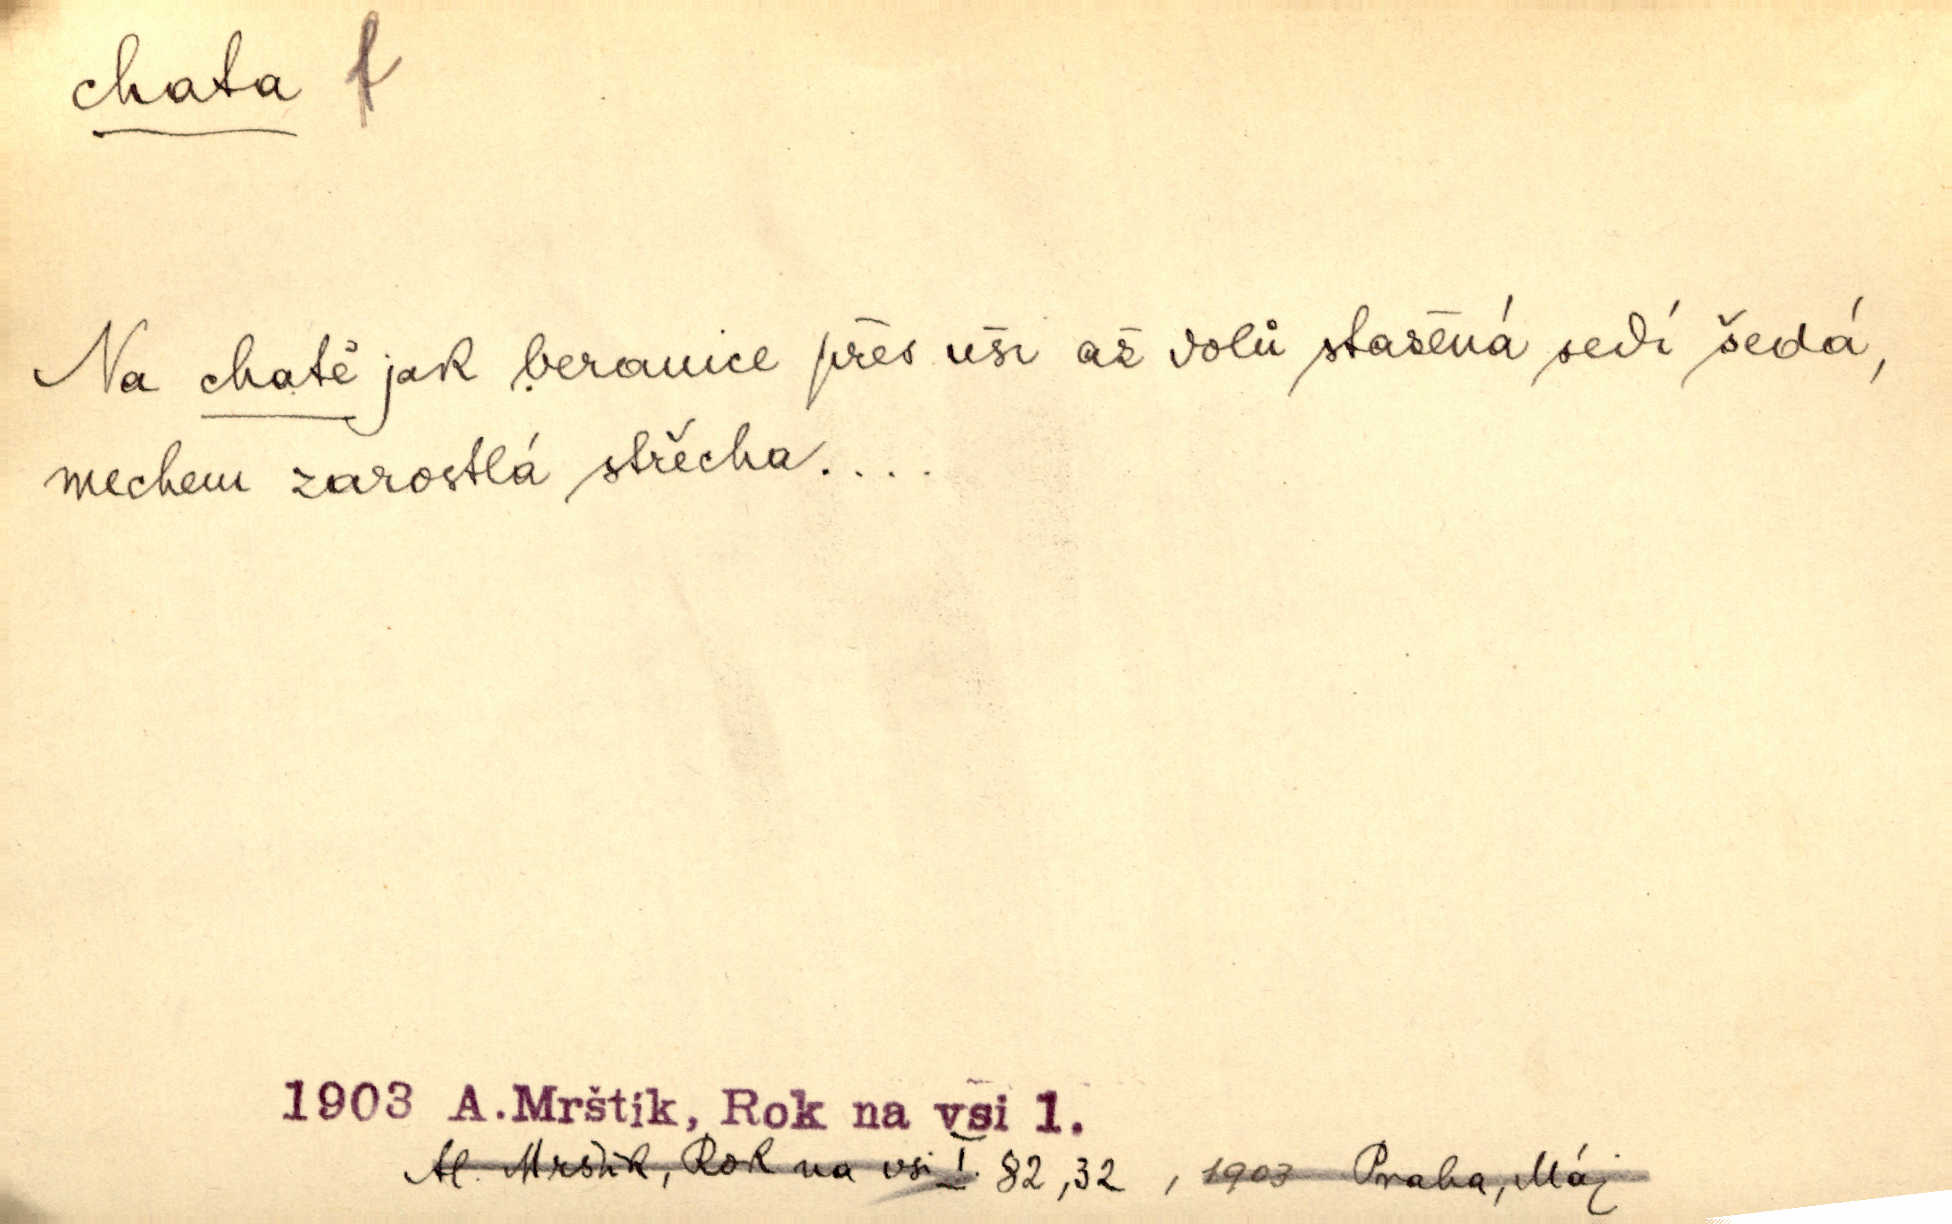 chata f
Na chatě jak beranice přes uši až dolů stažená sedí šedá,
mechem zarostlá střecha....
1903 A.Mrštík, Rok na vsi 1.
Al. Mrštík, Rok na vsi I. 82,32 , 1903 Praha, Máj